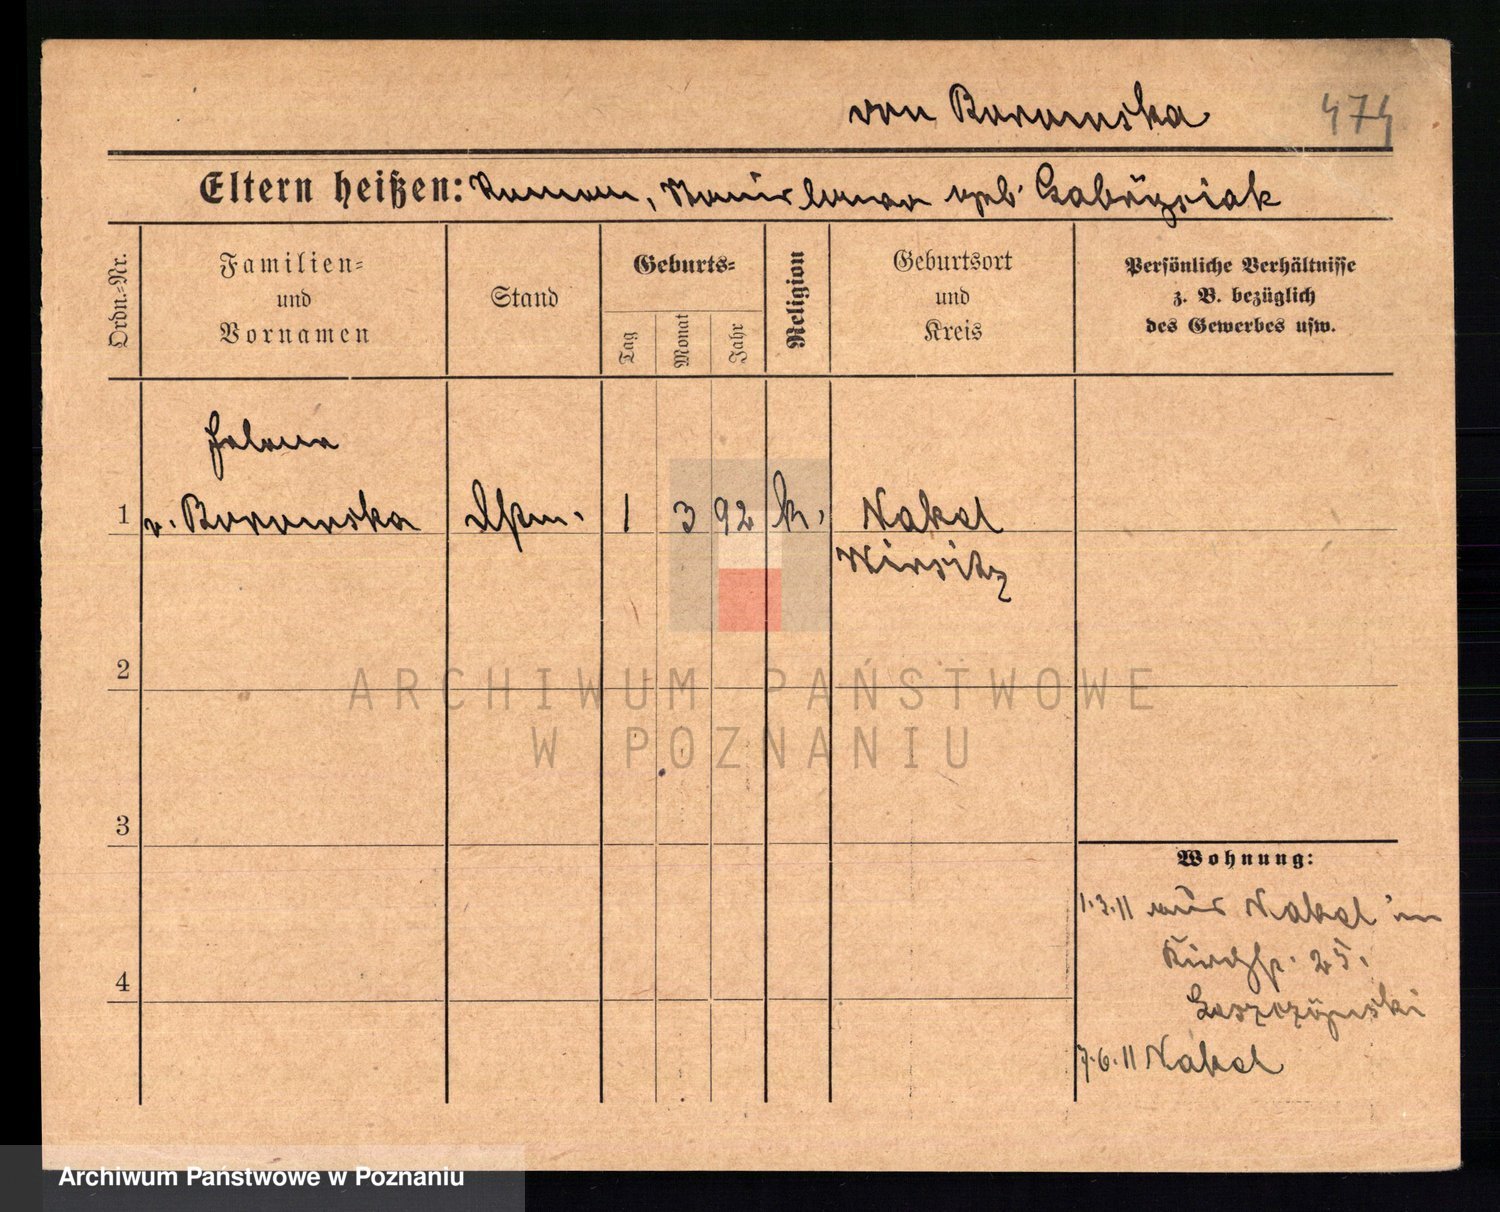 von Borowska 474
Eltern heißen: Roman, Stanislawa geb. Gabrysiak
Ordn.-Nr.
Familien-
und
Vornamen
Stand
Geburts-
Tag
Monat
Jahr
Religion
Geburtsort
und
Kreis
Persönliche Verhältnisse
z. B. bezüglich
des Gewerbes usw.
Helena
1 v. Borowska 1 3 92 k. Nakel
Wirsitz
2
ARCHIWUM PAŃSTWOWE
W POZNANIU
3
Wohnung:
1.3.11 aus Nakel
25.
4
7.6.11 Nakel
Archiwum Państwowe w Poznaniu